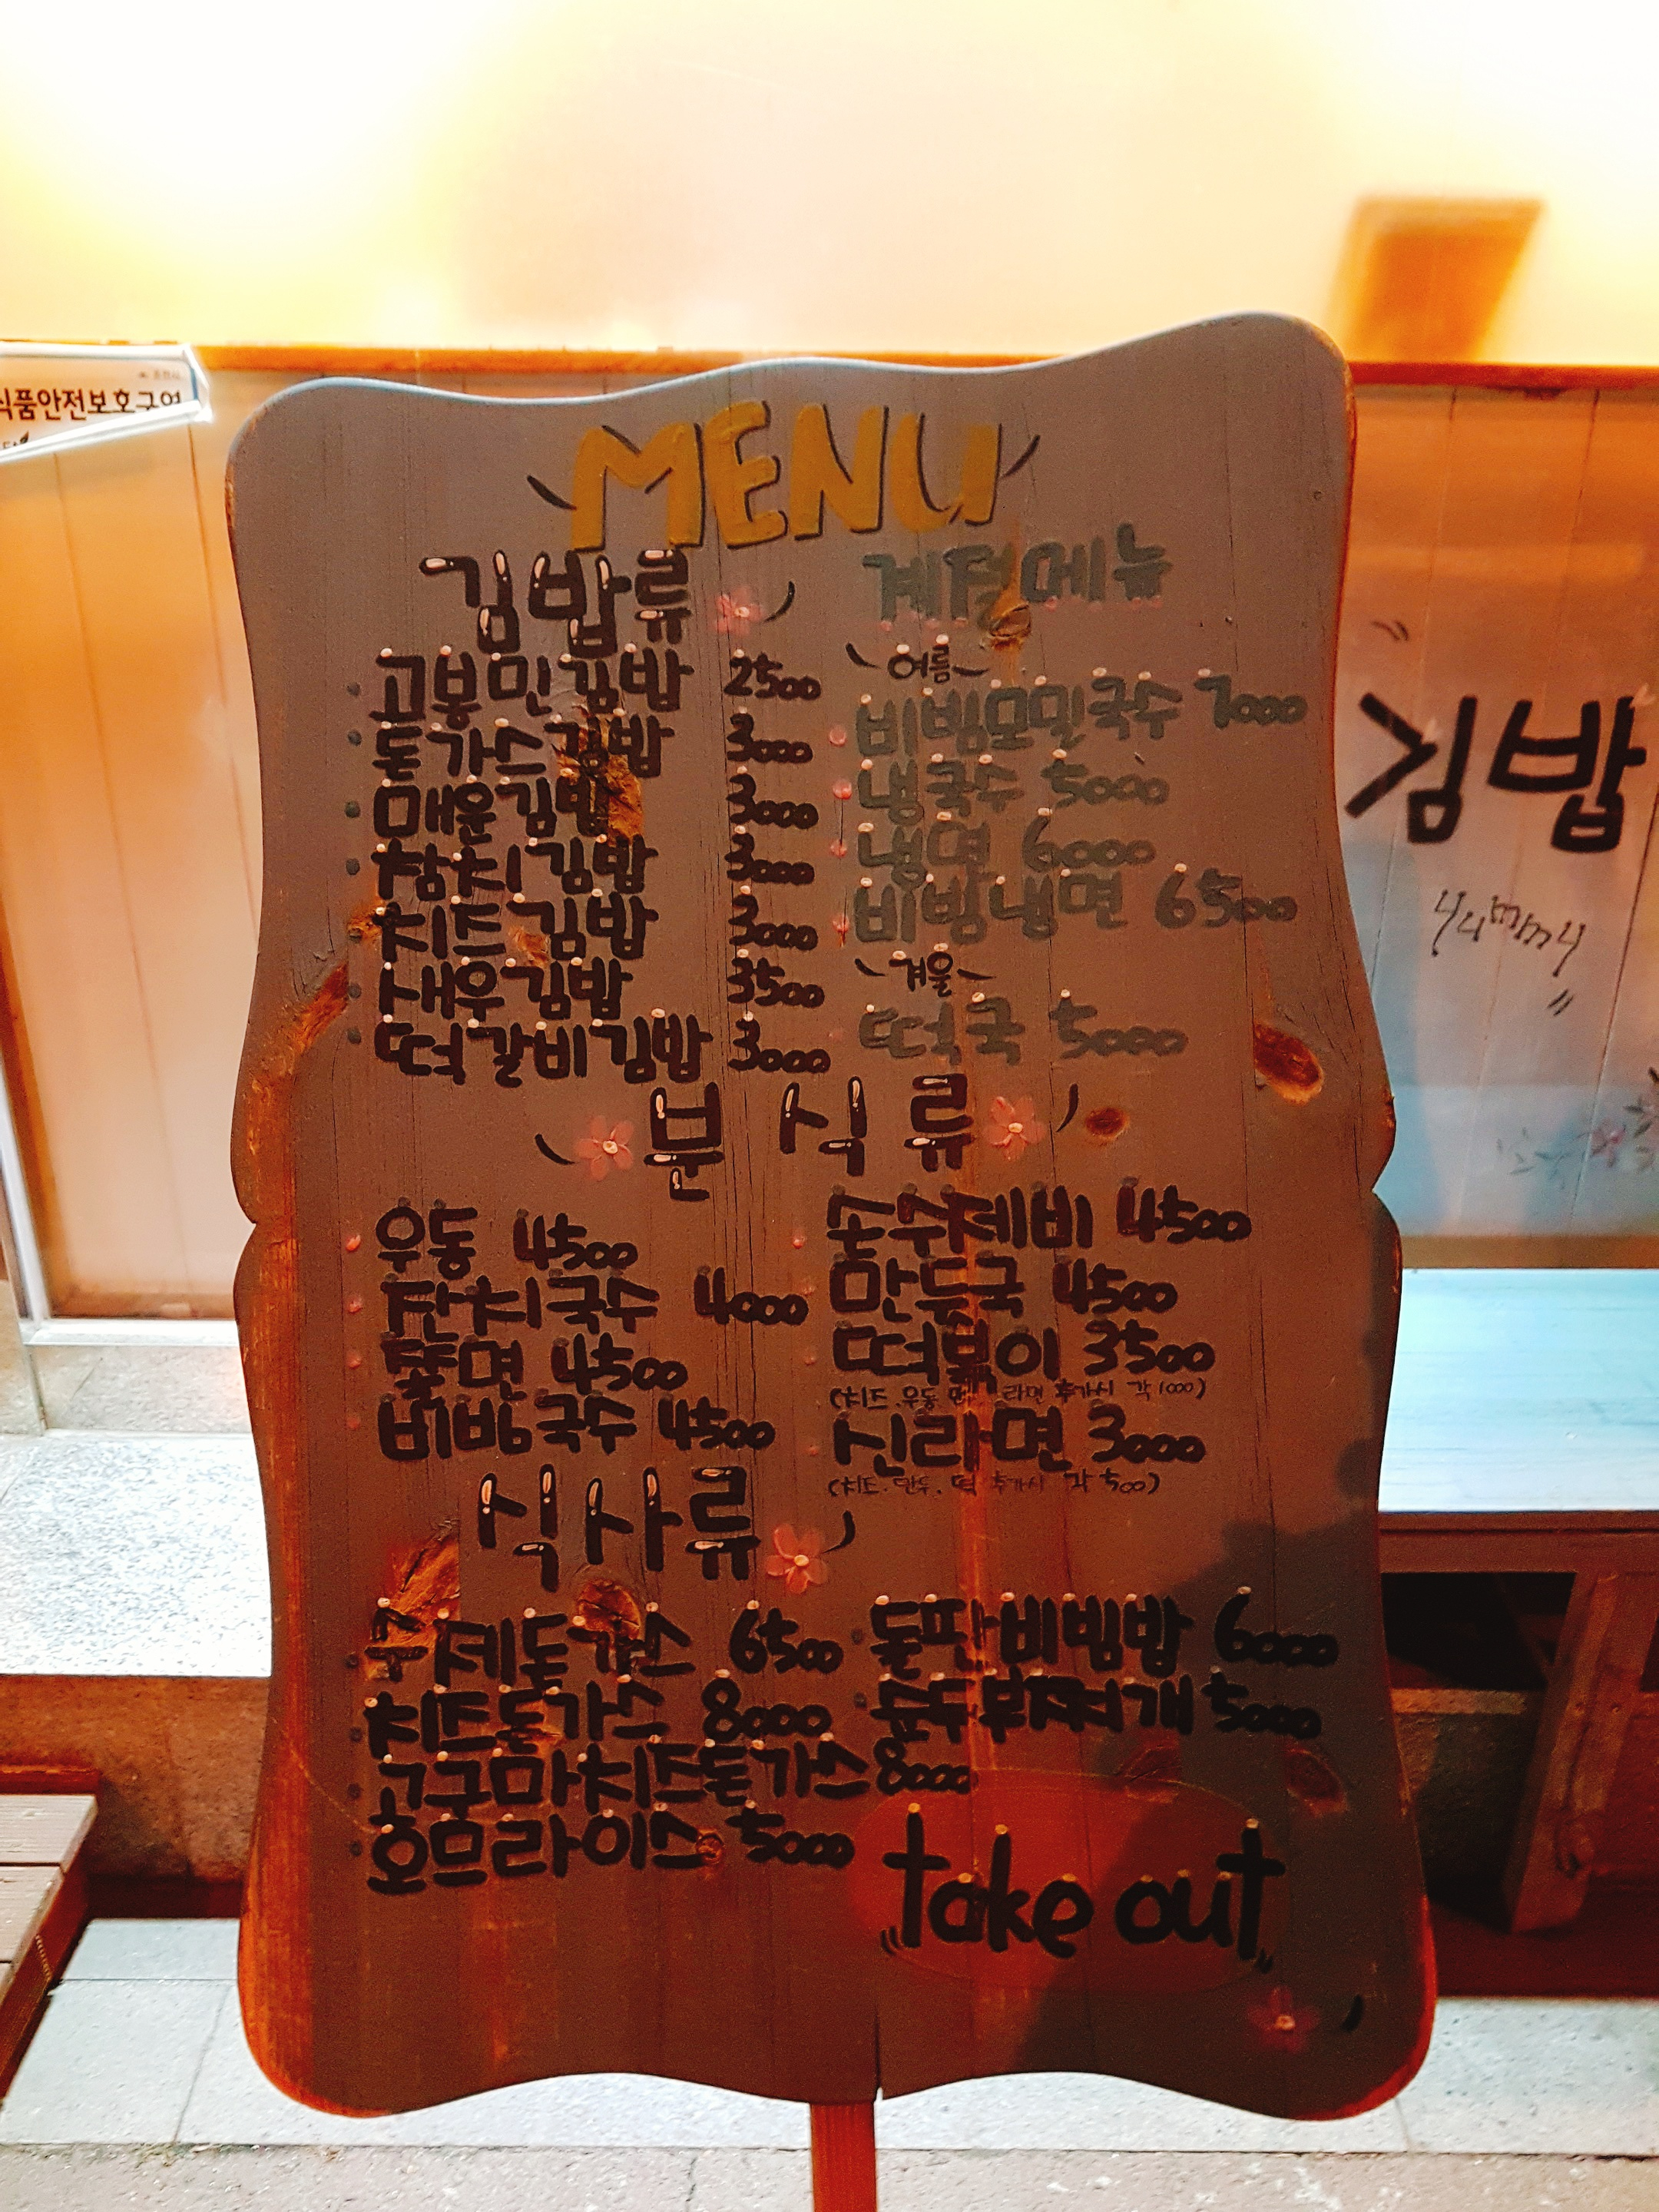 식품안전보호구역
MENU
김밥류
고봉민김밥 2500
돈가스김밥 3000
매운김밥 3000
참치김밥 3000
치즈김밥 3000
새우김밥 3500
떡갈비김밥 3000
계절메뉴
여름
비빔모밀국수 7000
냉국수 5000
냉면 6000
비빔냉면 6500
겨울
떡국 5000
분식류
우동 4500
잔치국수 4000
쫄면 4500
비빔국수 4500
손수제비 4500
만둣국 4500
떡볶이 3500
(치즈, 우동 라면 추가시 각 1000)
신라면 3000
(치즈, 만두, 떡 추가시 각 500)
식사류
수제돈가스 6500
치즈돈가스 8000
고구마치즈돈가스 8000
오므라이스 5000
돌판비빔밥 6000
순두부찌개 5000
take out
김밥
yummy